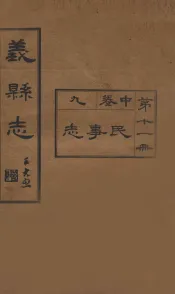 義縣志
第十一冊
中卷九
民事志